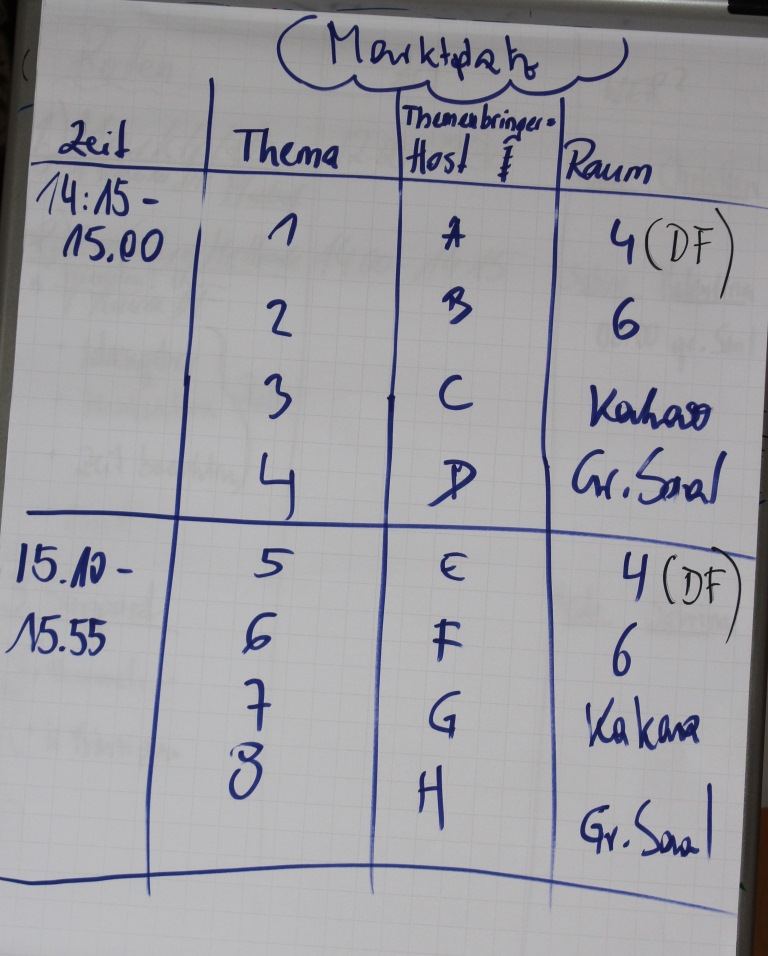 Marktplatz
Zeit Thema Themenbringer= Host Raum
14:15-
15.00
1 A 4 (DF)
2 B 6
3 C
4 D Gr. Saal
15.10-
15.55
5 E 4 (DF)
6 F 6
7 G
8 H Gr. Saal